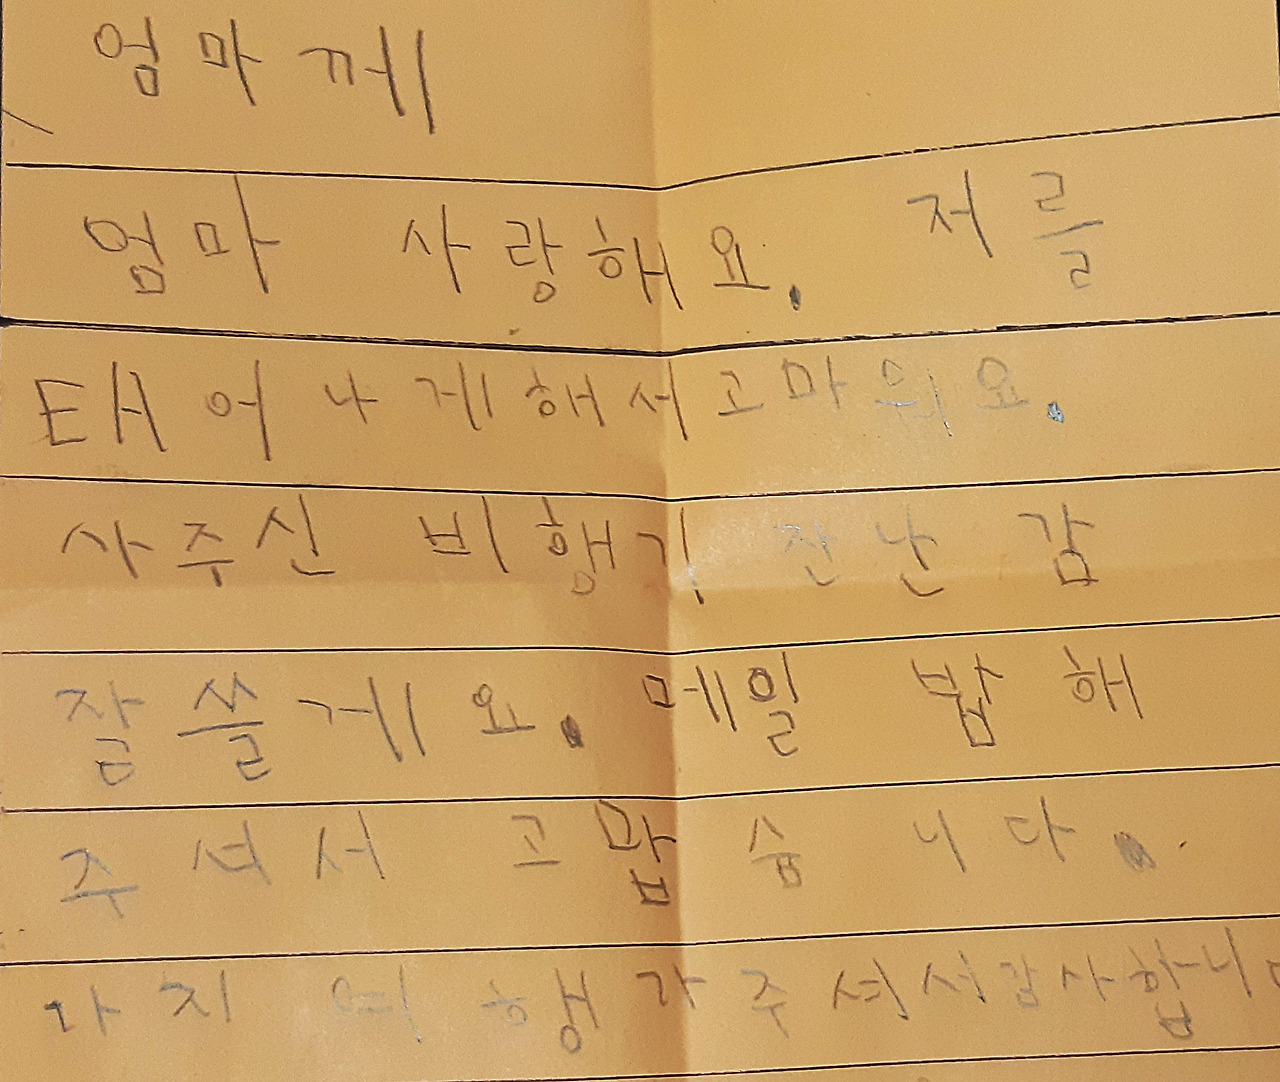 엄마께
엄마 사랑해요. 저를
태어나게해서고마워요.
사주신 비행기 잔난감
잘쓸게요. 메일 밥해
주셔서 고맙습니다.
가치 여행가주셔서감사합니다